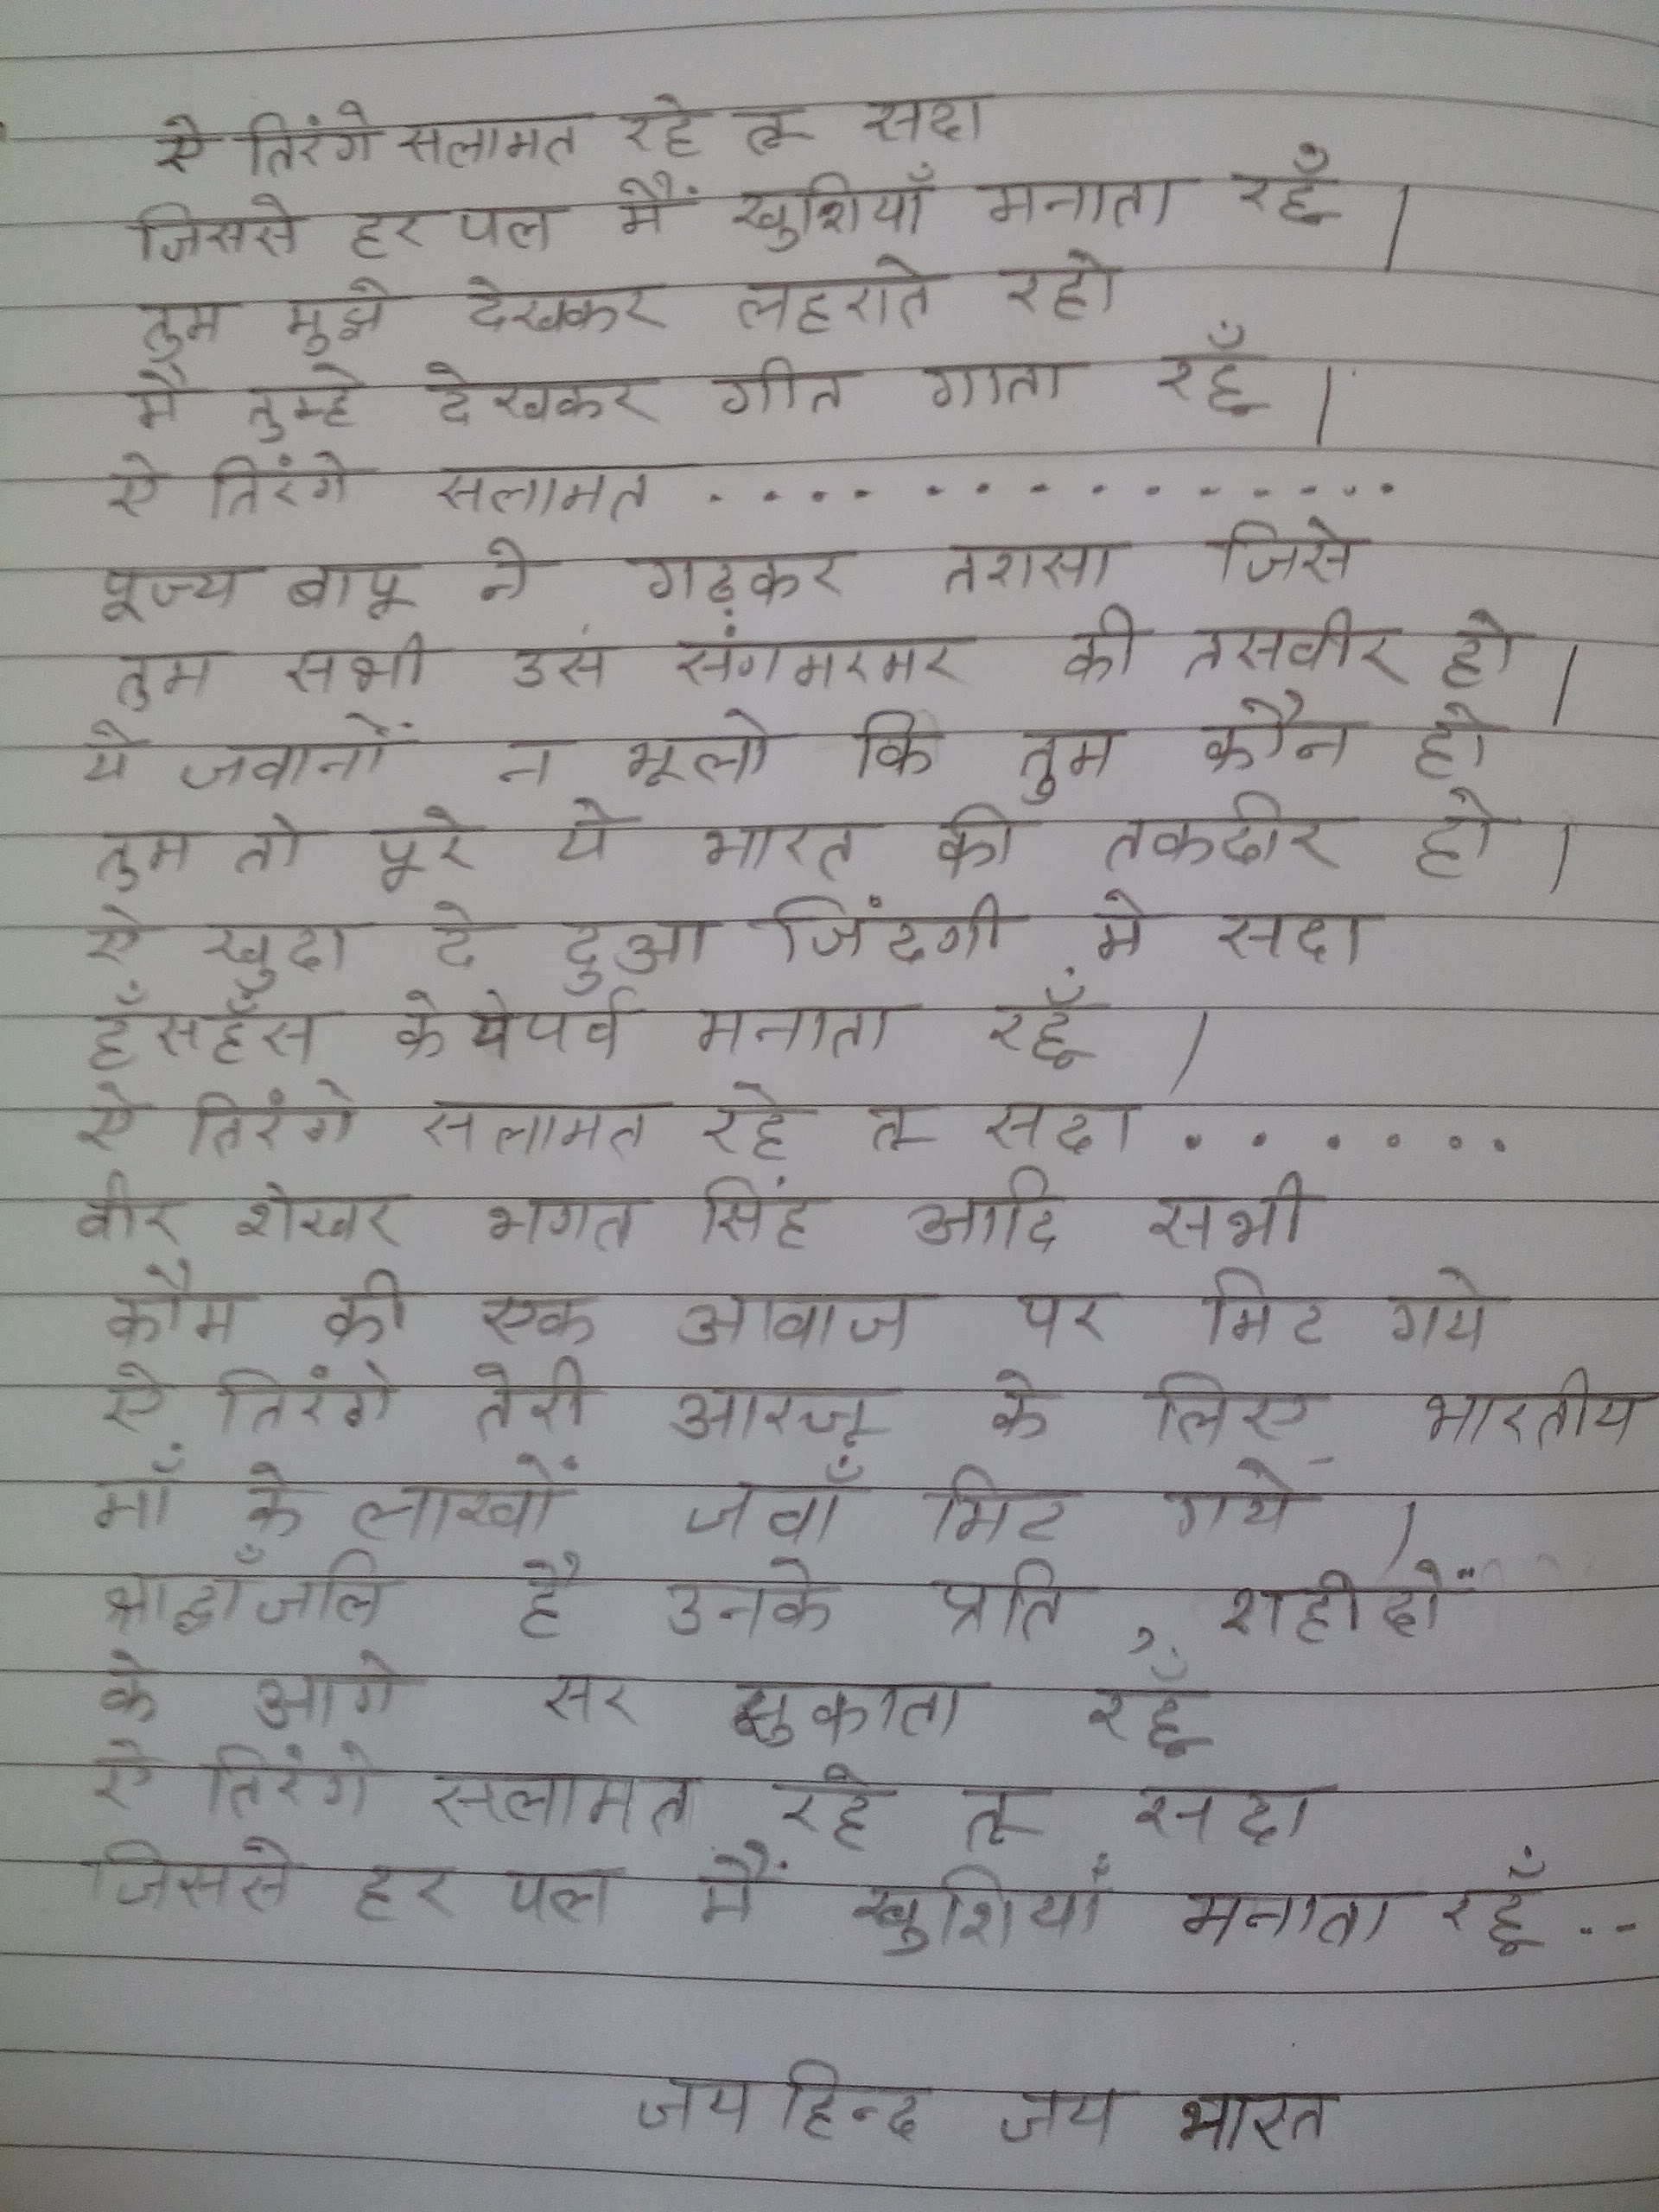 ऐ तिरंगे सलामत रहे तू सदा
जिससे हर पल मैं खुशियाँ मनाता रहूँ ।
तुम मुझे देखकर लहराते रहो
मैं तुम्हे देखकर गीत गाता रहूँ ।
ऐ तिरंगे सलामत . . . . . . . . . . . . . . . .
पूज्य बापू ने गढ़कर तरासा जिसे
तुम सभी उस संगमरमर की तसवीर हो ।
ये जवानों न भूलो कि तुम कौन हो
तुम तो पूरे ये भारत की तकदीर हो ।
ऐ खुदा दे दुआ जिंदगी मे सदा
हँसहँस के ये पर्व मनाता रहूँ ।
ऐ तिरंगे सलामत रहे तू सदा . . . . . . .
वीर शेखर भगत सिंह आदि सभी
कौम की एक आवाज पर मिट गये
ऐ तिरंगे तेरी आरजू के लिए भारतीय
माँ के लाखों जवाँ मिट गये ।
श्राद्धाँजलि है उनके प्रति , शहीदों
के आगे सर झुकाता रहूँ
ऐ तिरंगे सलामत रहे तू सदा
जिससे हर पल मैं खुशियाँ मनाता रहूँ . . --
जय हिन्द जय भारत